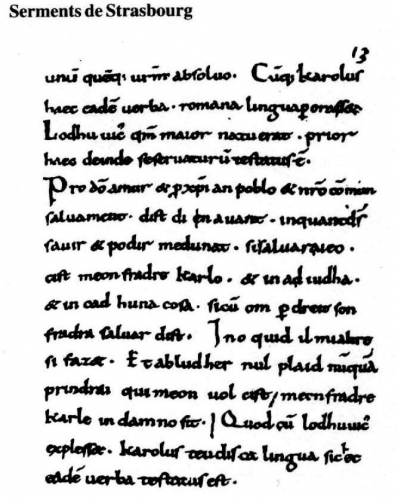 Serments de Strasbourg
13
unū quēq; ur̄m absoluo. Cūq; karolus
haec eadē uerba. romana lingua ꝑorasset
Lodhuuic̄ qm̄ maior natu erat. prior
haec deinde seseruaturū testatus ē.
Pro dō amur & ꝓ xp̄ian poblo & nr̄o cōmun
saluament. dist di en auant. inquantd̄s
sauir & podir medunat. sisaluaraieo.
cist meonfradre karlo. & in adiudha.
& in cad huna cosa. sicū om ꝑ dreit son
fradra saluar dist. Ino quid il mialtre
si fazet. Et abludher nul plaid nūquā
prindrai qui meon uol cist / meonfradre
karle in damno sit. / Quod cū lodhuuic̄
explesset. karolus teudisca lingua sic hec
eadē uerba testatus est.